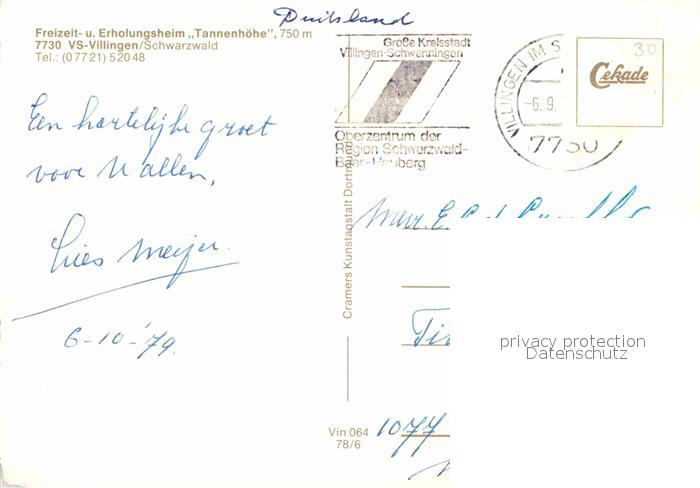 Duitsland
Freizeit- u. Erholungsheim „Tannenhöhe", 750 m
7730 VS-Villingen/Schwarzwald
Tel.: (07721) 52048
Große Kreisstadt
Villingen-Schwenningen
Oberzentrum der
Region Schwarzwald-
Baar-Heuberg
VILLINGEN IM S
-6.9.
7730
30
Cekade
Een hartelijke groet
voor U allen,
Lies Meijer.
6-10-'79.
Cramers Kunstanstalt Dortmund
Mevr. E.
1077
Vin 064
78/6
privacy protection
Datenschutz